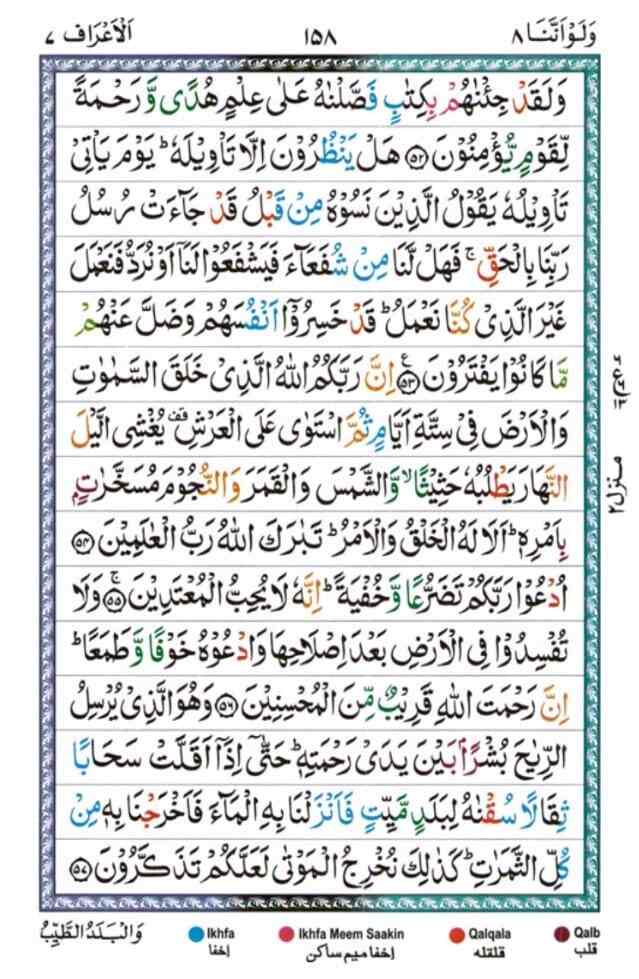 وَلَوْ اَنَّنَا ٨
١٥٨
اَلْاَعْرَاف ٧
وَلَقَدْ جِئْنٰهُمْ بِكِتٰبٍ فَصَّلْنٰهُ عَلٰى عِلْمٍ هُدًى وَّ رَحْمَةً
لِّقَوْمٍ يُّؤْمِنُوْنَ ۝٥٢ هَلْ يَنْظُرُوْنَ اِلَّا تَاْوِيْلَهٗ ؕ يَوْمَ يَاْتِىْ
تَاْوِيْلُهٗ يَقُوْلُ الَّذِيْنَ نَسُوْهُ مِنْ قَبْلُ قَدْ جَآءَتْ رُسُلُ
رَبِّنَا بِالْحَقِّ ۚ فَهَلْ لَّنَا مِنْ شُفَعَآءَ فَيَشْفَعُوْا لَنَاۤ اَوْ نُرَدُّ فَنَعْمَلَ
غَيْرَ الَّذِىْ كُنَّا نَعْمَلُ ؕ قَدْ خَسِرُوْۤا اَنْفُسَهُمْ وَضَلَّ عَنْهُمْ
مَّا كَانُوْا يَفْتَرُوْنَ ۝٥٣ اِنَّ رَبَّكُمُ اللّٰهُ الَّذِىْ خَلَقَ السَّمٰوٰتِ
وَالْاَرْضَ فِىْ سِتَّةِ اَيَّامٍ ثُمَّ اسْتَوٰى عَلَى الْعَرْشِ يُغْشِى الَّيْلَ
النَّهَارَ يَطْلُبُهٗ حَثِيْثًا ۙ وَّالشَّمْسَ وَالْقَمَرَ وَالنُّجُوْمَ مُسَخَّرٰتٍۭ
بِاَمْرِهٖ ؕ اَلَا لَهُ الْخَلْقُ وَالْاَمْرُ ؕ تَبٰرَكَ اللّٰهُ رَبُّ الْعٰلَمِيْنَ ۝٥٤
اُدْعُوْا رَبَّكُمْ تَضَرُّعًا وَّ خُفْيَةً ؕ اِنَّهٗ لَا يُحِبُّ الْمُعْتَدِيْنَ ۝٥٥ ۚ وَلَا
تُفْسِدُوْا فِى الْاَرْضِ بَعْدَ اِصْلَاحِهَا وَادْعُوْهُ خَوْفًا وَّ طَمَعًا ؕ
اِنَّ رَحْمَتَ اللّٰهِ قَرِيْبٌ مِّنَ الْمُحْسِنِيْنَ ۝٥٦ وَهُوَ الَّذِىْ يُرْسِلُ
الرِّيٰحَ بُشْرًۢا بَيْنَ يَدَىْ رَحْمَتِهٖ ؕ حَتّٰۤى اِذَاۤ اَقَلَّتْ سَحَابًا
ثِقَالًا سُقْنٰهُ لِبَلَدٍ مَّيِّتٍ فَاَنْزَلْنَا بِهِ الْمَآءَ فَاَخْرَجْنَا بِهٖ مِنْ
كُلِّ الثَّمَرٰتِ ؕ كَذٰلِكَ نُخْرِجُ الْمَوْتٰى لَعَلَّكُمْ تَذَكَّرُوْنَ ۝٥٧
منزل ٢
وَالْبَلَدُ الطَّيِّبُ
Ikhfa
اخفا
Ikhfa Meem Saakin
اخفا میم ساکن
Qalqala
قلقله
Qalb
قلب